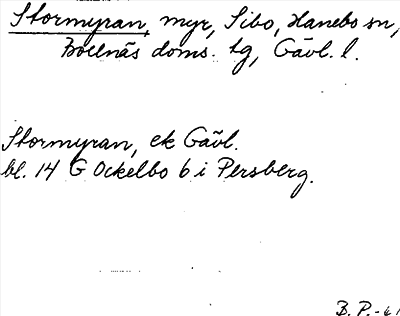 Stormyran, myr, Sibo, Hanebo sn,
Bollnäs doms. tg, Gävl. l.
Stormyran, ek Gävl.
bl. 14 G Ockelbo 6 i Persberg.
B. P. -61